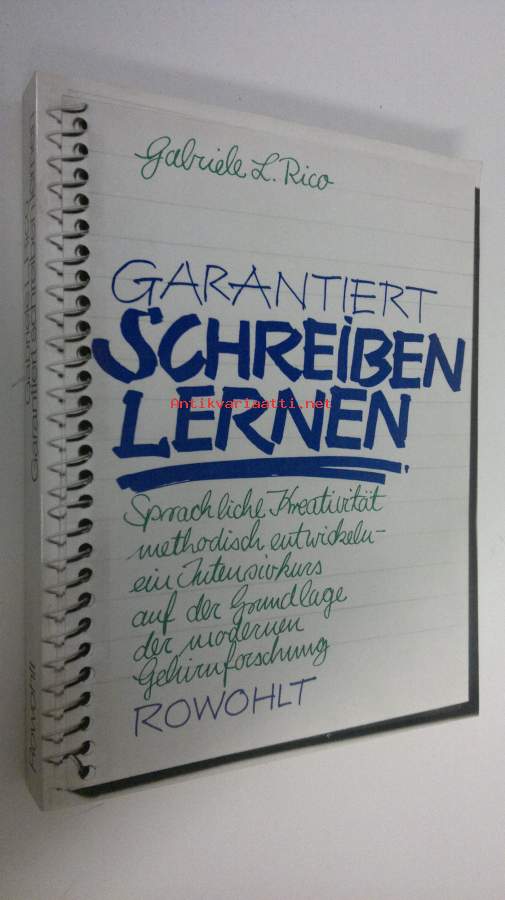 Gabriele L. Rico
GARANTIERT
SCHREIBEN
LERNEN
Antikvariaatti.net
Sprachliche Kreativität
methodisch entwickeln –
ein Intensivkurs
auf der Grundlage
der modernen
Gehirnforschung
ROWOHLT
Gabriele L. Rico
Garantiert schreiben lernen
Rowohlt